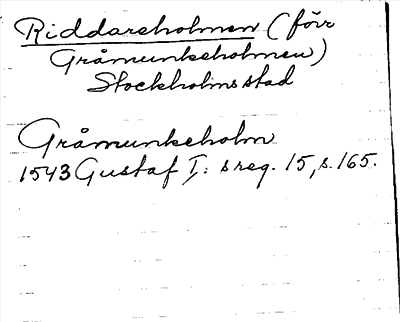 Riddareholmen (förr
Gråmunkeholmen)
Stockholms stad
Gråmunkeholm
1543 Gustaf I: s reg. 15, s. 165.